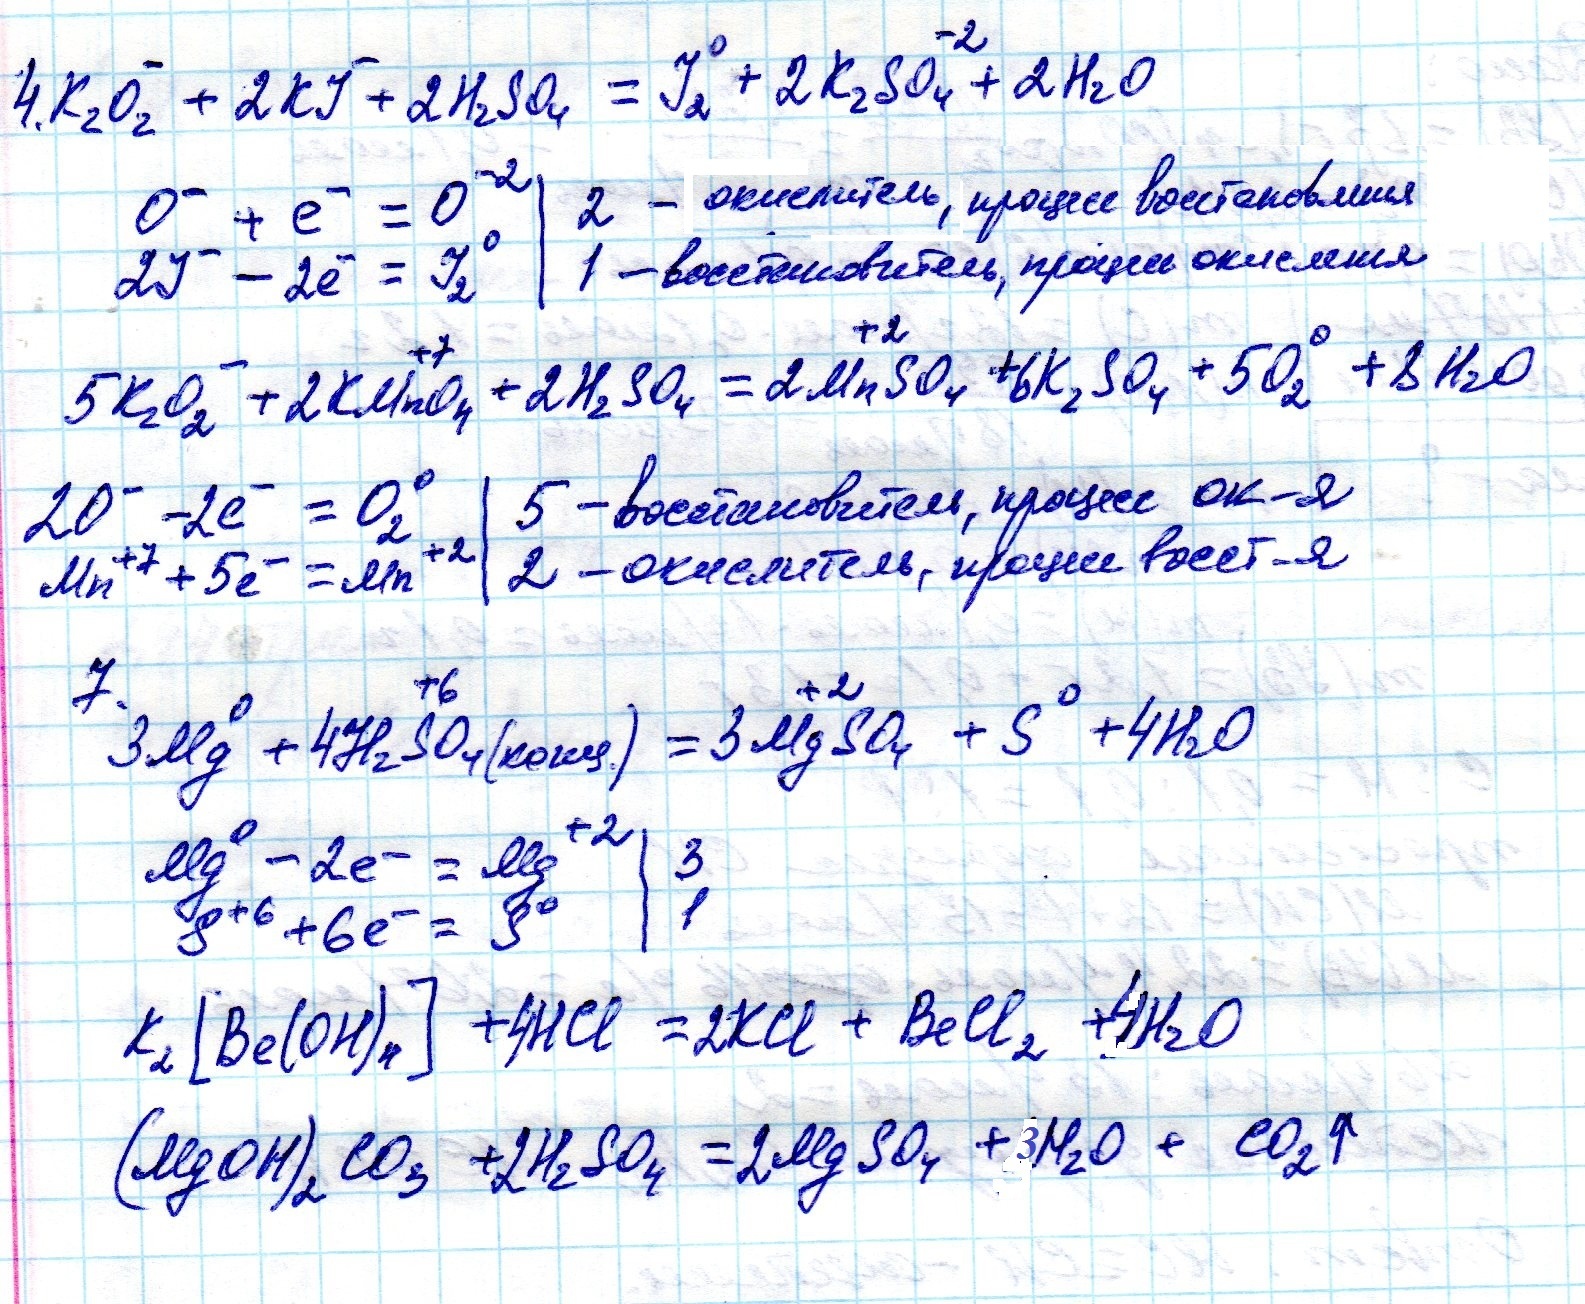 4. K₂O₂⁻ + 2KJ⁻ + 2H₂SO₄ = J₂⁰ + 2K₂SO₄⁻² + 2H₂O
O⁻ + e⁻ = O⁻² | 2 – окислитель, процесс восстановления
2J⁻ – 2e⁻ = J₂⁰ | 1 – восстановитель, процесс окисления
5K₂O₂⁻ + 2KMn⁺⁷O₄ + 2H₂SO₄ = 2Mn⁺²SO₄ + 6K₂SO₄ + 5O₂⁰ + 8H₂O
2O⁻ – 2e⁻ = O₂⁰ | 5 – восстановитель, процесс ок-я
Mn⁺⁷ + 5e⁻ = Mn⁺² | 2 – окислитель, процесс восст-я
7.
3Mg⁰ + 4H₂S⁺⁶O₄(конц.) = 3Mg⁺²SO₄ + S⁰ + 4H₂O
Mg⁰ – 2e⁻ = Mg⁺² | 3
S⁺⁶ + 6e⁻ = S⁰ | 1
K₂[Be(OH)₄] + 4HCl = 2KCl + BeCl₂ + 4H₂O
(MgOH)₂CO₃ + 2H₂SO₄ = 2MgSO₄ + 3H₂O + CO₂↑